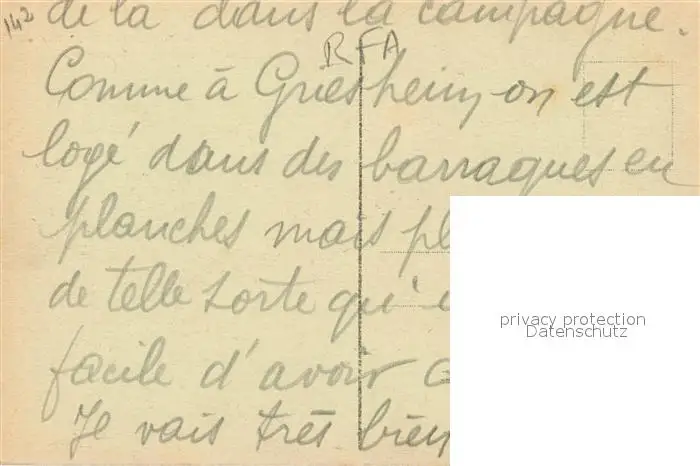 142
de la dans la campagne.
RFA
Comme à Griesheim on est
logé dans des barraques en
planches mais pl
de telle sorte qu'
facile d'avoir
Je vais très bien
privacy protection
Datenschutz